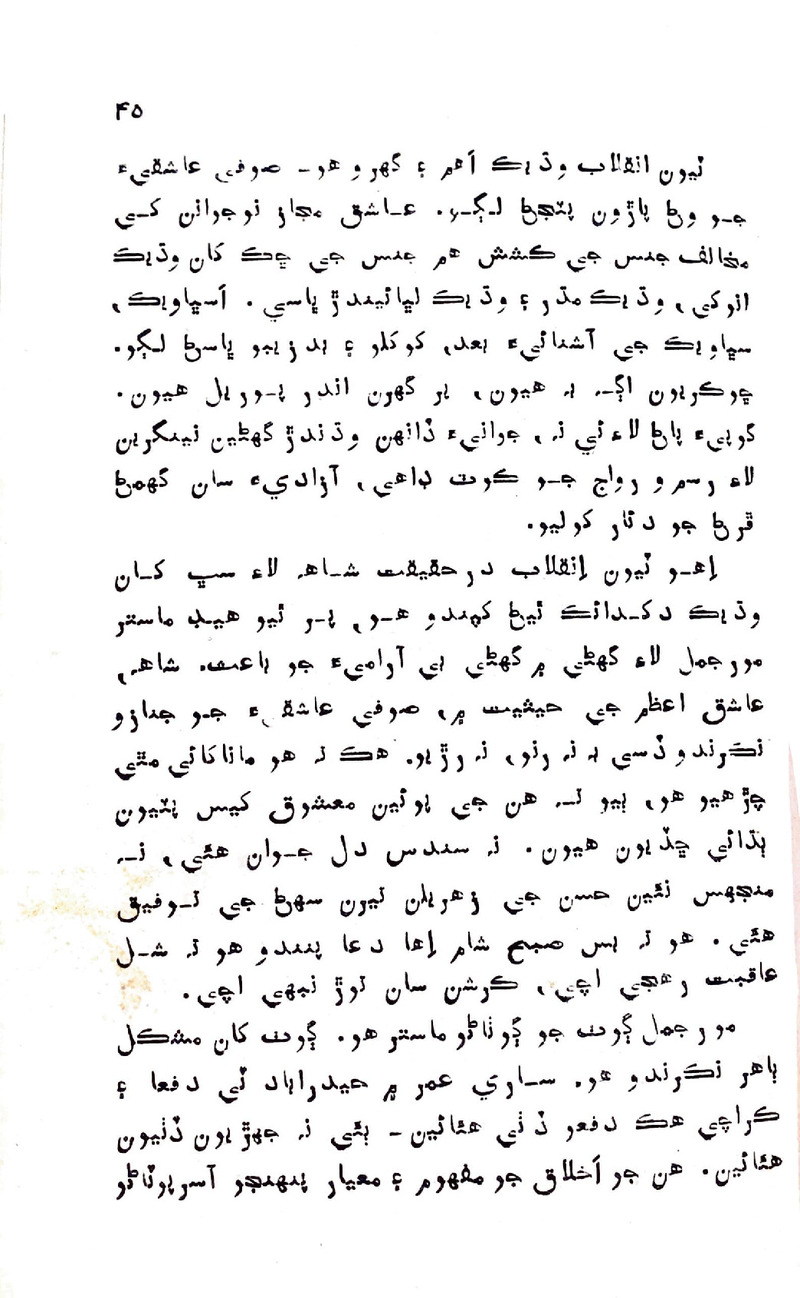 ۴۵
ٽيون انقلاب وڌيڪ اَهم ۽ گهرو هو۔ صوفي عاشقيءَ
جو وڻ پاڙون پٽجڻ لڳو. عاشق مجاز نوجوانن کي
مخالف جنس جي ڪشش هم جنس جي ڇڪ کان وڌيڪ
انوکي، وڌيڪ مڌر ۽ وڌيڪ لڀائيندڙ ڀاسي. اَسڀاويڪ،
سڀاويڪ جي آشنائيءَ بعد، کوکلو ۽ بدزيبو ڀاسڻ لڳو.
ڇوڪريون اڳـ به هيون، پر گهرن اندر پوريل هيون.
گوپيءَ پاڻ لاءِ ئي نه، جوانيءَ ڏانهن وڌندڙ گهڻين نينگرين
لاءِ رسم و رواج جو ڪوٽ ڊاهي، آزاديءَ سان گهمڻ
ڦرڻ جو دئار کوليو.
اِهو ٽيون اِنقلاب درحقيقت شاهه لاءِ سڀ کان
وڌيڪ دکدائڪ ٿيڻ کپندو هو، پر ٿيو هيڊ ماستر
مورجمل لاءِ گهڻي ۾ گهڻي بي آراميءَ جو باعث. شاهه،
عاشق اعظم جي حيثيت ۾، صوفي عاشقيءَ جو جنازو
نڪرندو ڏسي به نه رنو، نه رڙيو. هڪ ته هو ماناکائي مٿي
چڙهيو هو، ٻيو تـه هن جي پوئين معشوق کيس پٽيون
ٻڌائي ڇڏيون هيون. نه سندس دل جوان هئي، نـه
منجهس نئين حسن جي زهريلن تيرن سهڻ جي توفيق
هئي. هو ته بس صبح شام اِها دعا پنندو هو ته شل
عاقبت رهجي اچي، ڪرشن سان توڙ نبهي اچي.
مورجمل ڳوٺ جو ڳوٺاڻو ماستر هو. ڳوٺ کان مشڪل
ٻاهر نڪرندو هو. ساري عمر ۾ حيدراباد ٽي دفعا ۽
ڪراچي هڪ دفعو ڏٺي هئائين۔ ٻئي نه جهڙيون ڏٺيون
هئائين. هن جو اَخلاق جو مفهوم ۽ معيار پنهنجو آسرپوٽاڻو